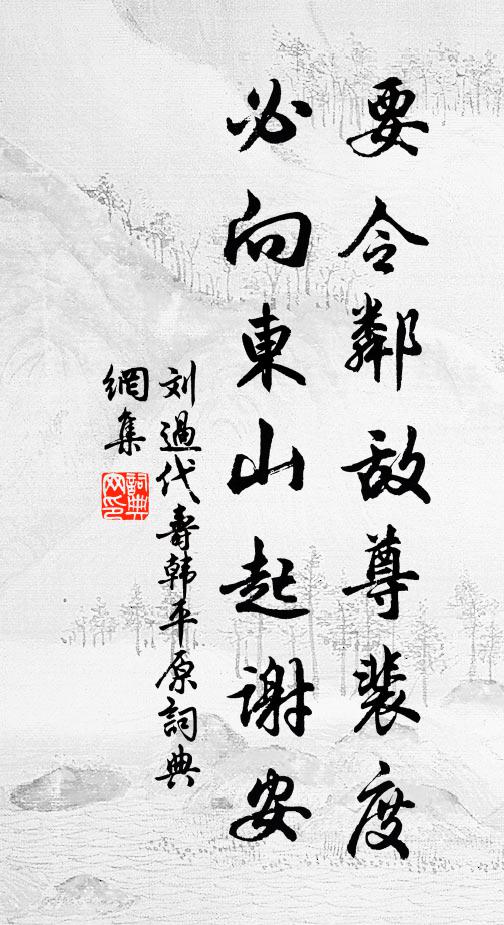 要令鄰敌尊裴度
必向東山起谢安
刘過代壽韩平原詞典
網集
詞典
网印